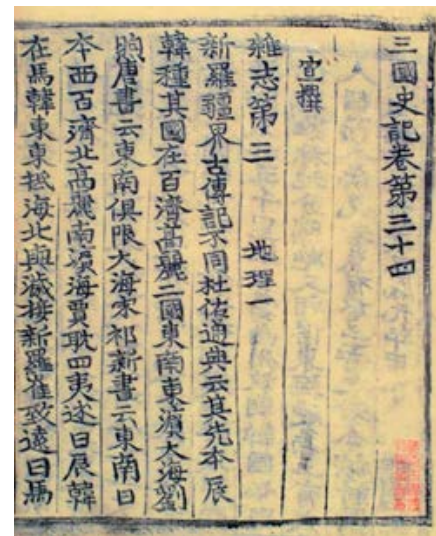 三國史記卷第三十四
宣撰
雜志第三 地理一
新羅疆界古傳記不同杜佑通典云其先本辰
韓種其國在百濟高麗二國東南東濱大海劉
昫唐書云東南俱限大海宋祁新書云東南日
本西百濟北高麗南濱海賈耽四夷述曰辰韓
在馬韓東東抵海北與濊接新羅崔致遠曰馬